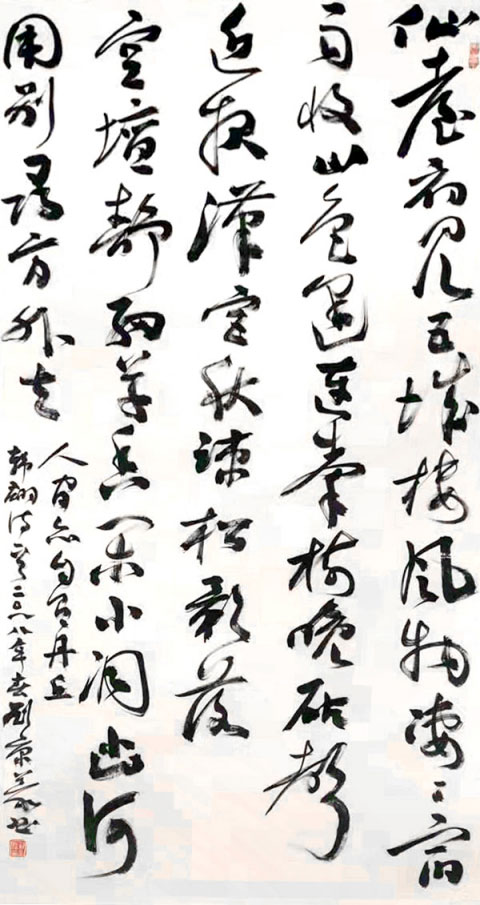 仙臺初见五城楼风物凄〻宿
雨收山色遥连秦树晚砧声
近报漢宫秋疎松影落
空壇静细草香闲小洞幽何
用别寻方外去
人间亦自有丹丘
韩翃诗 二〇一八年春刘 书